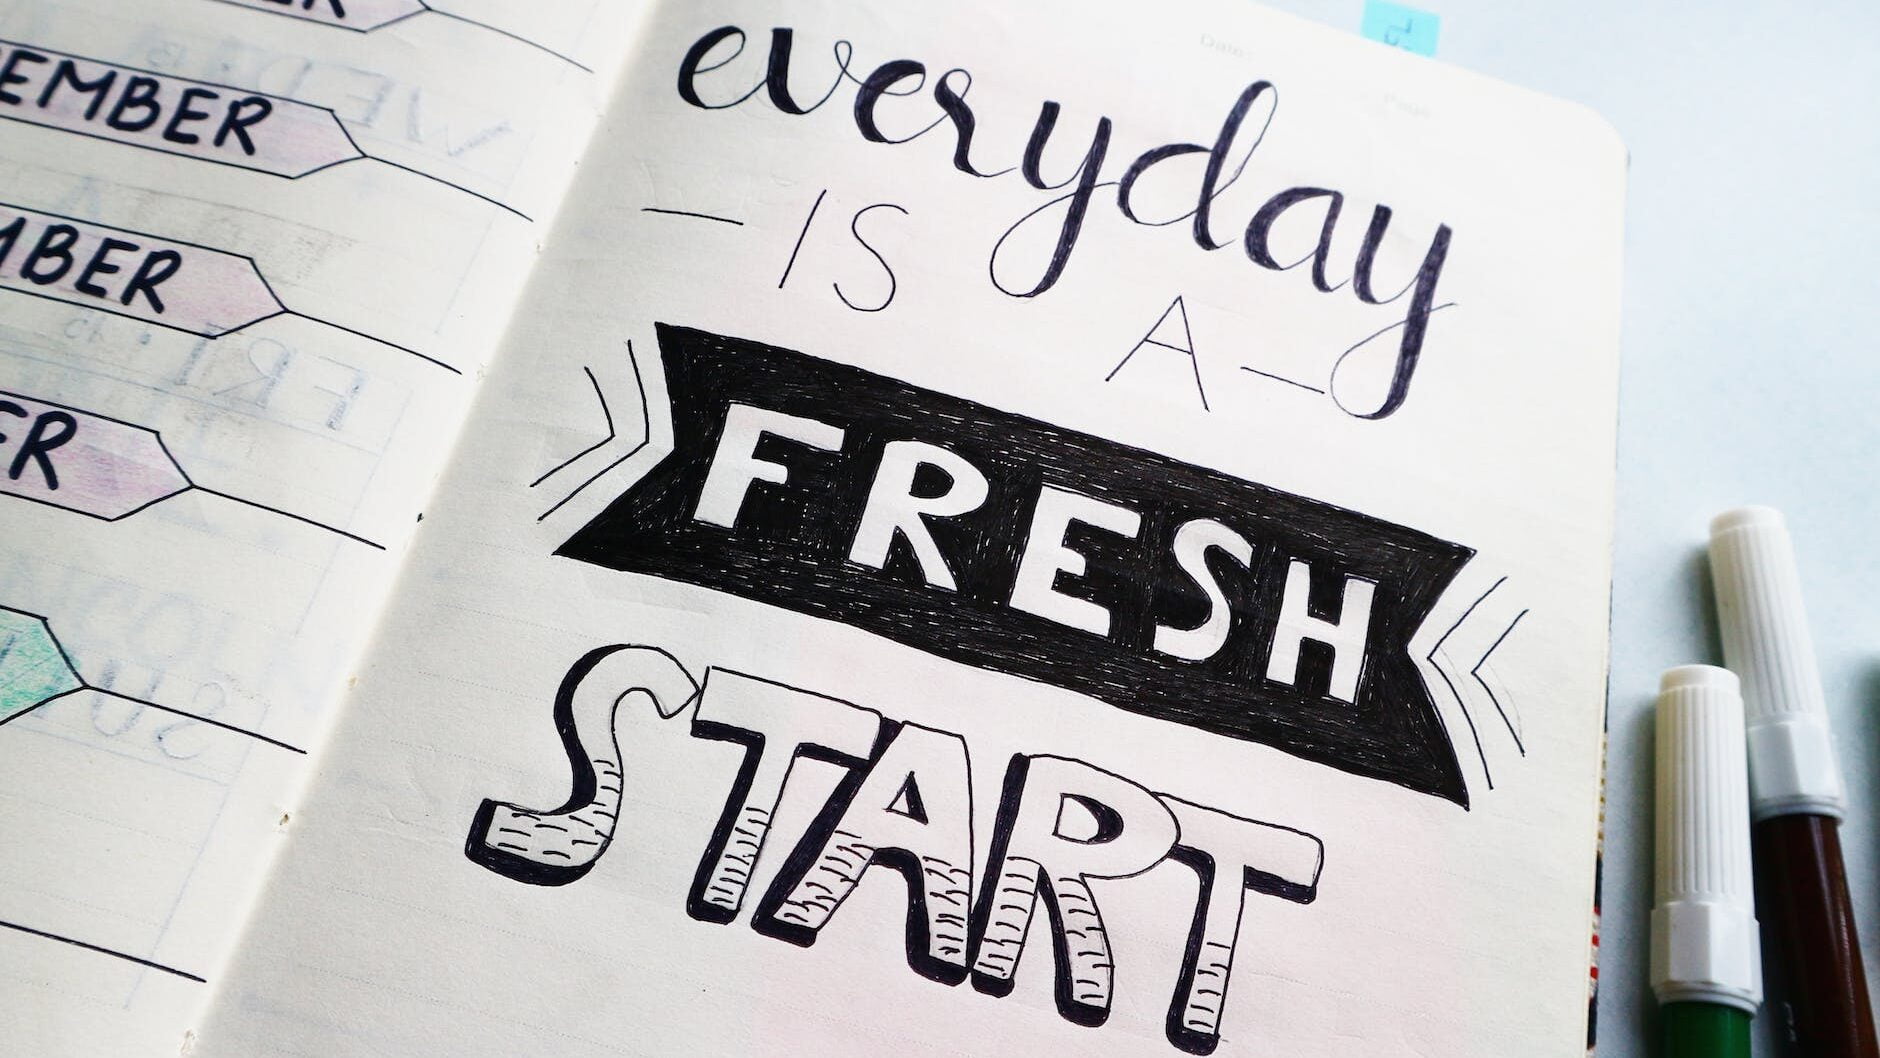 ER
EMBER
MBER
ER
everyday
- IS A -
FRESH
START